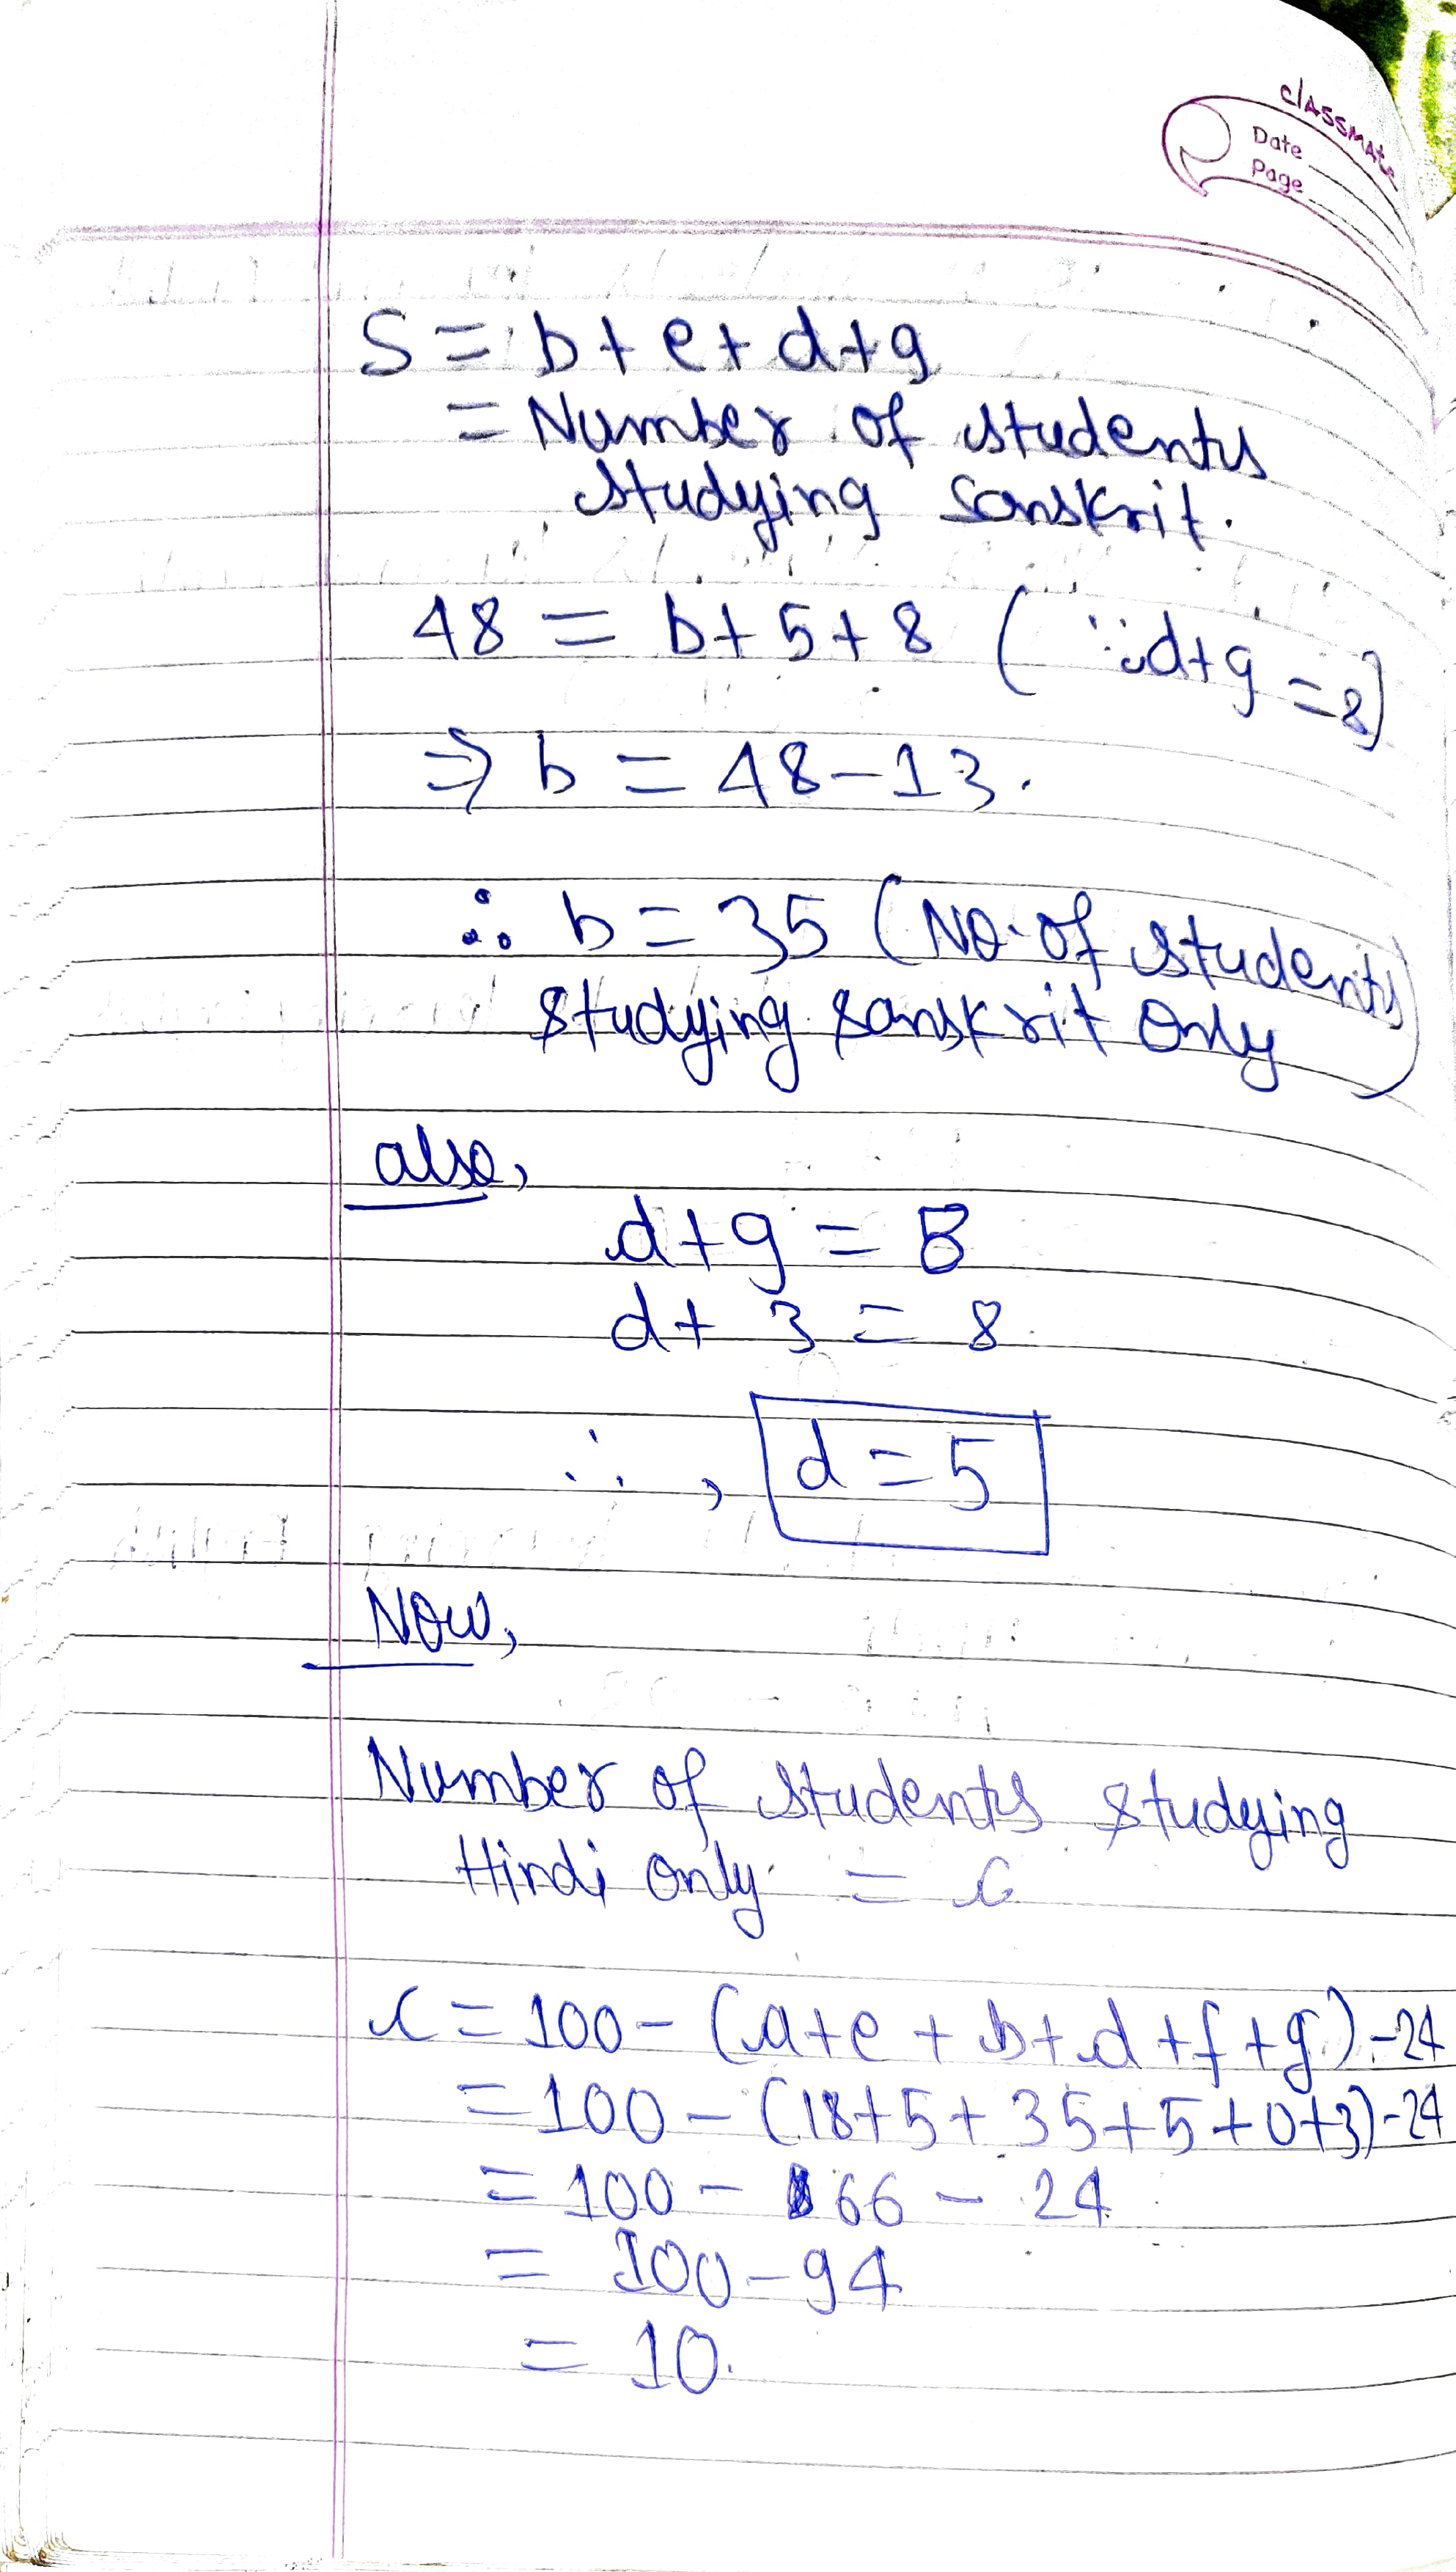 classmate
Date
Page
S = b + e + d + g
= Number of students
studying Sanskrit.
48 = b + 5 + 8 ( ∵ d + g = 8)
⇒ b = 48 - 13.
∴ b = 35 (No. of students
studying Sanskrit Only)
also,
d + g = 8
d + 3 = 8
∴ , d = 5
Now,
Number of students studying
Hindi only = c
c = 100 - (a + e + b + d + f + g) - 24
= 100 - (18 + 5 + 35 + 5 + 0 + 3) - 24
= 100 - 66 - 24
= 100 - 94
= 10.